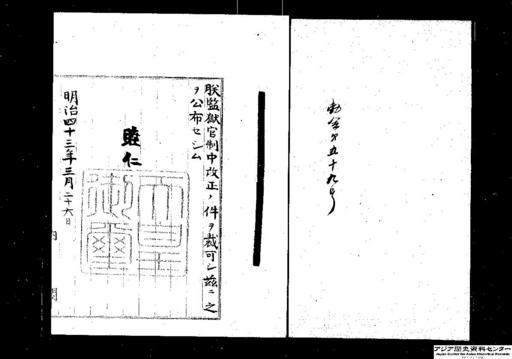 勅令第五十九号
朕監獄官制中改正ノ件ヲ裁可シ茲ニ之
ヲ公布セシム
睦仁
天皇御璽
明治四十三年三月二十六日
内閣
アジア歴史資料センター
Japan Center for Asian Historical Records